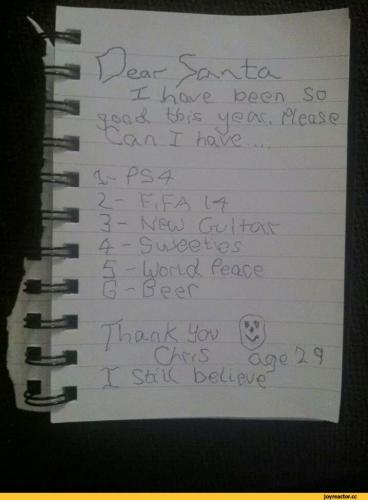 Dear Santa
I have been so
good this year. Please
Can I have...
1- PS4
2- FIFA 14
3- New Guitar
4- Sweeties
5- World Peace
6- Beer
Thank You
Chris age 29
I Still believe
joyreactor.cc